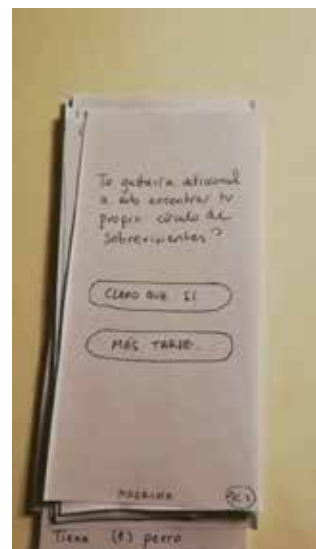 Te gustaría adicional
a esto encontrar tu
propio círculo de
sobrevivientes?
CLARO QUE SI
MÁS TARDE
MADRINA
Tiene (1) perro